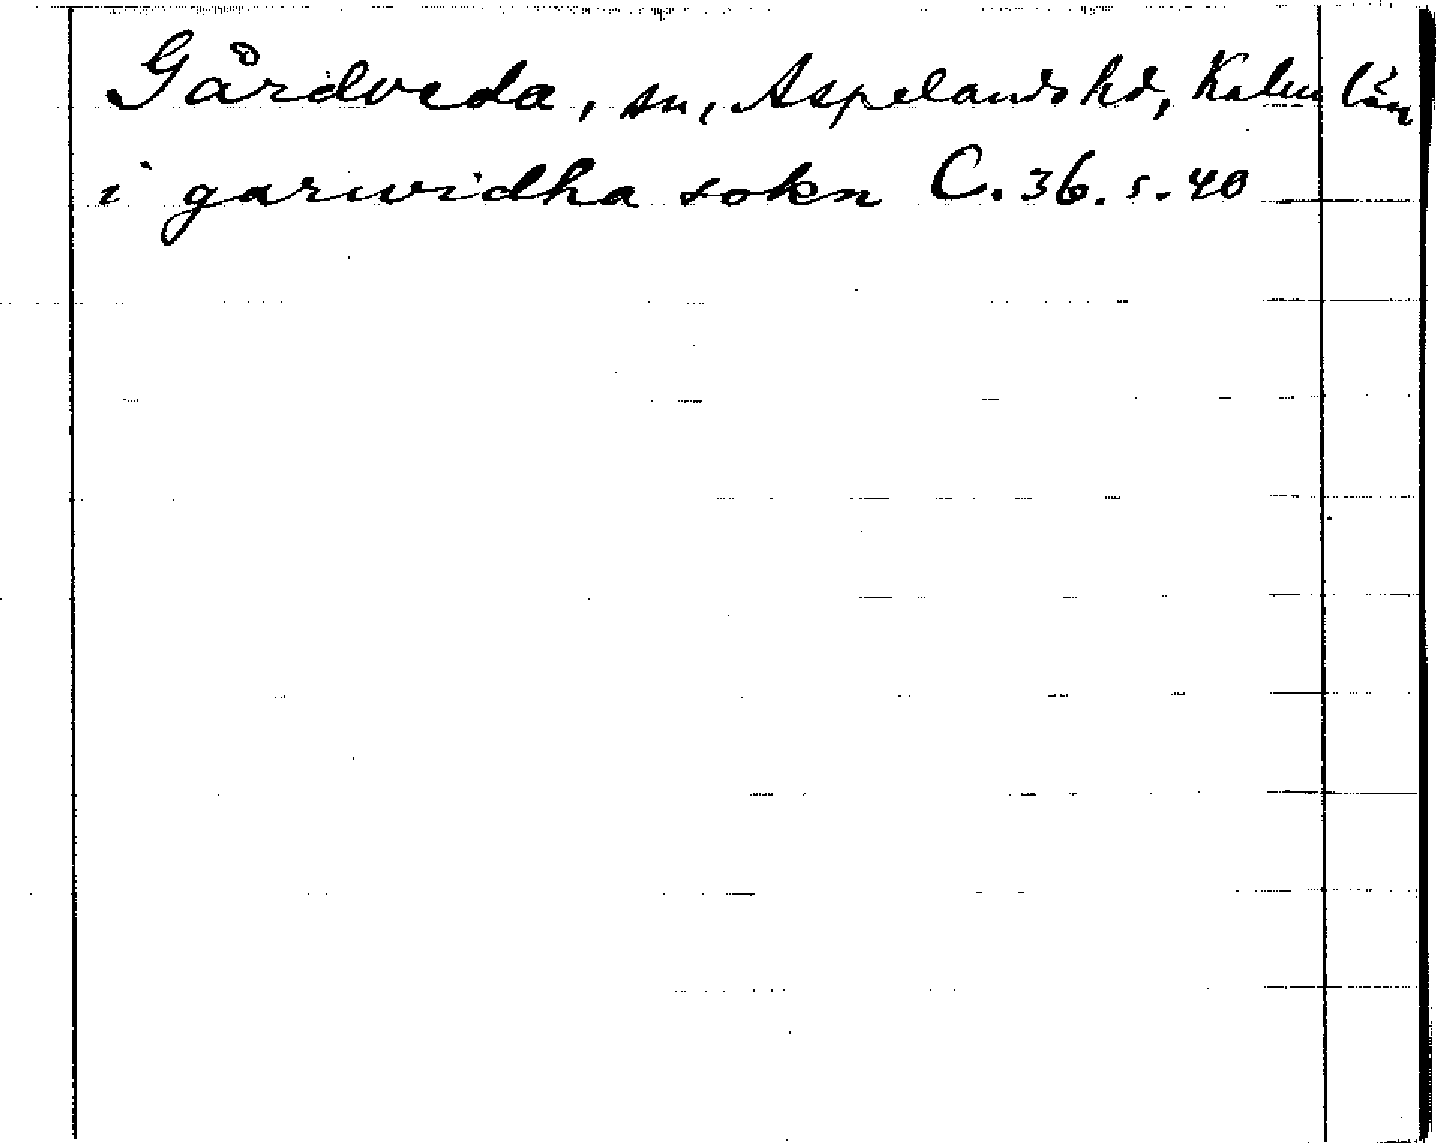 Gårdveda, sn, Aspelands hd, Kalm län
i garwidha sokn C. 36. s. 40